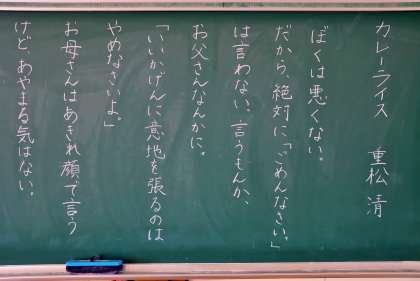 カレーライス　重松 清
ぼくは悪くない。
だから、絶対に「ごめんなさい。」
は言わない。言うもんか、
お父さんなんかに。
「いいかげんに意地を張るのは
やめなさいよ。」
お母さんはあきれ顔で言う
けど、あやまる気はない。